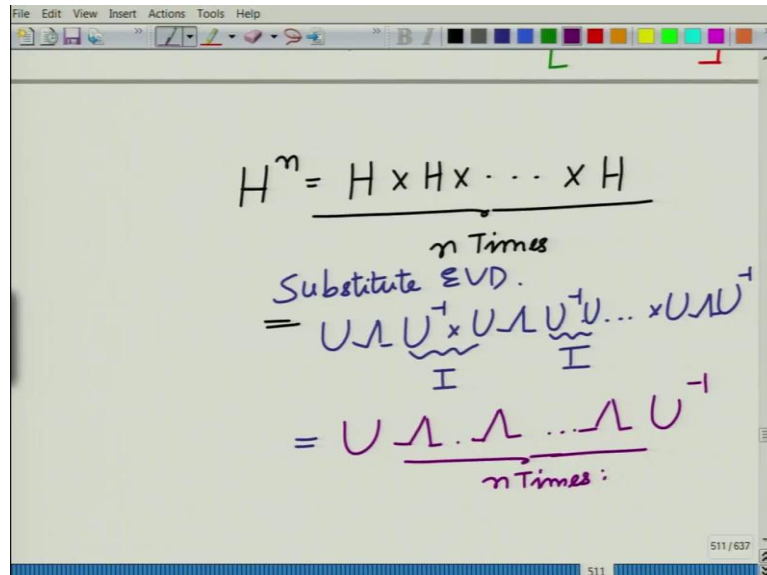 File Edit View Insert Actions Tools Help
B I
Hⁿ = H × H × · · · × H
n Times
Substitute EVD.
= U Λ U⁻¹ × U Λ U⁻¹ U ... × U Λ U⁻¹
I I
= U Λ . Λ ... Λ U⁻¹
n Times:
511/637
511